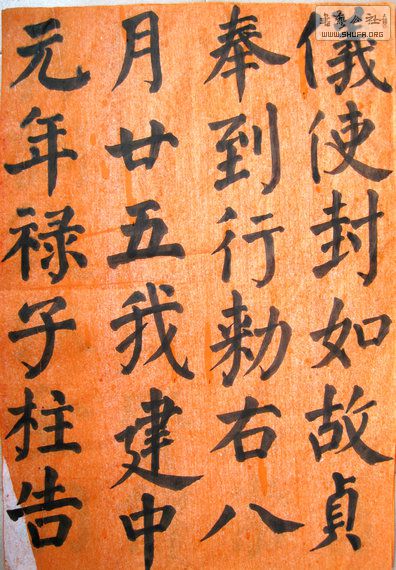 儀使封如故貞
奉到行勅右八
月廿五我建中
元年禄子柱告
WWW.SHUFA.ORG